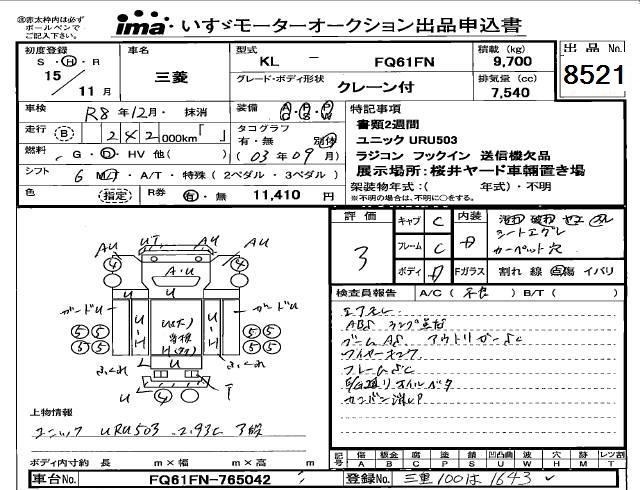 ㊟赤太枠内は必ず
ボールペンで
ご記入下さい。
ima・いすゞモーターオークション出品申込書
初度登録 車名 型式 積載 (kg) 出品 No.
S・H・R 三菱 KL － FQ61FN 9,700 8521
15/11月 グレード・ボディ形状 クレーン付 排気量 (cc) 7,540
車検 R8年12月・抹消 装備 AC・PS・PW 特記事項
書類2週間
走行 (B) 242,000km「 」 タコグラフ 有・無 別体 ユニック URU503
燃料 G・D・HV 他( ) (03年09月) ラジコン フックイン 送信機欠品
シフト 6 MT・A/T・特殊(2ペダル・3ペダル) 展示場所:桜井ヤード車輛置き場
色 (指定) R券 有・無 11,410 円 架装物年式:( 年式)・不明
※不明の場合は、不明に○をする。
評価 3 キャブ C 内装
シートエグレ
カーペット穴
フレーム C
ボディ Fガラス 割れ 線 点傷 イバリ
検査員報告 A/C( ) B/T( )
エアモレ
ABSランプ点灯
ブームAS アウトリガーSC
ワイヤーキンク
フレームSC
カンバン消し
AU UT AU AU
④ ④
A・U
U
ガードU U-H U-H ガードU
⑤⑤ ⑤⑤
⑤⑤ ⑤⑤
ふくれ U ふくれ
U ④ T
上物情報
ユニック URU503 2.93t 3段
ボディ内寸約 長 m×幅 m×高 m
記号 傷 A 鈑金 B 腐 C 塗 P 錆 S 凹凸曲 U 波 W 穴 H 外 M レツ割 T
車台No. FQ61FN-765042 登録No. 三重100は1643